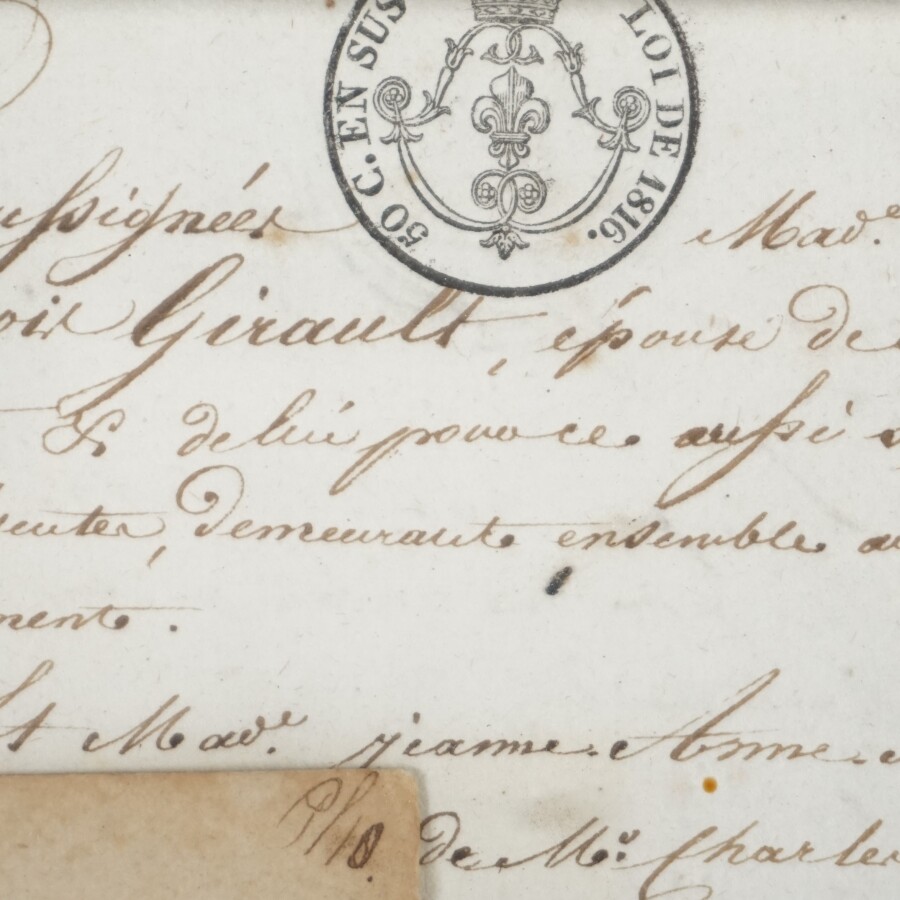 50 C. EN SUS LOI DE 1816.
ussignées Mad.e
ois Girault, épouse de
& de lui pouvoce aussi
senter, demeurant ensemble au
ment.
Et Mad.e jeanne Anne
de Mr. Charles